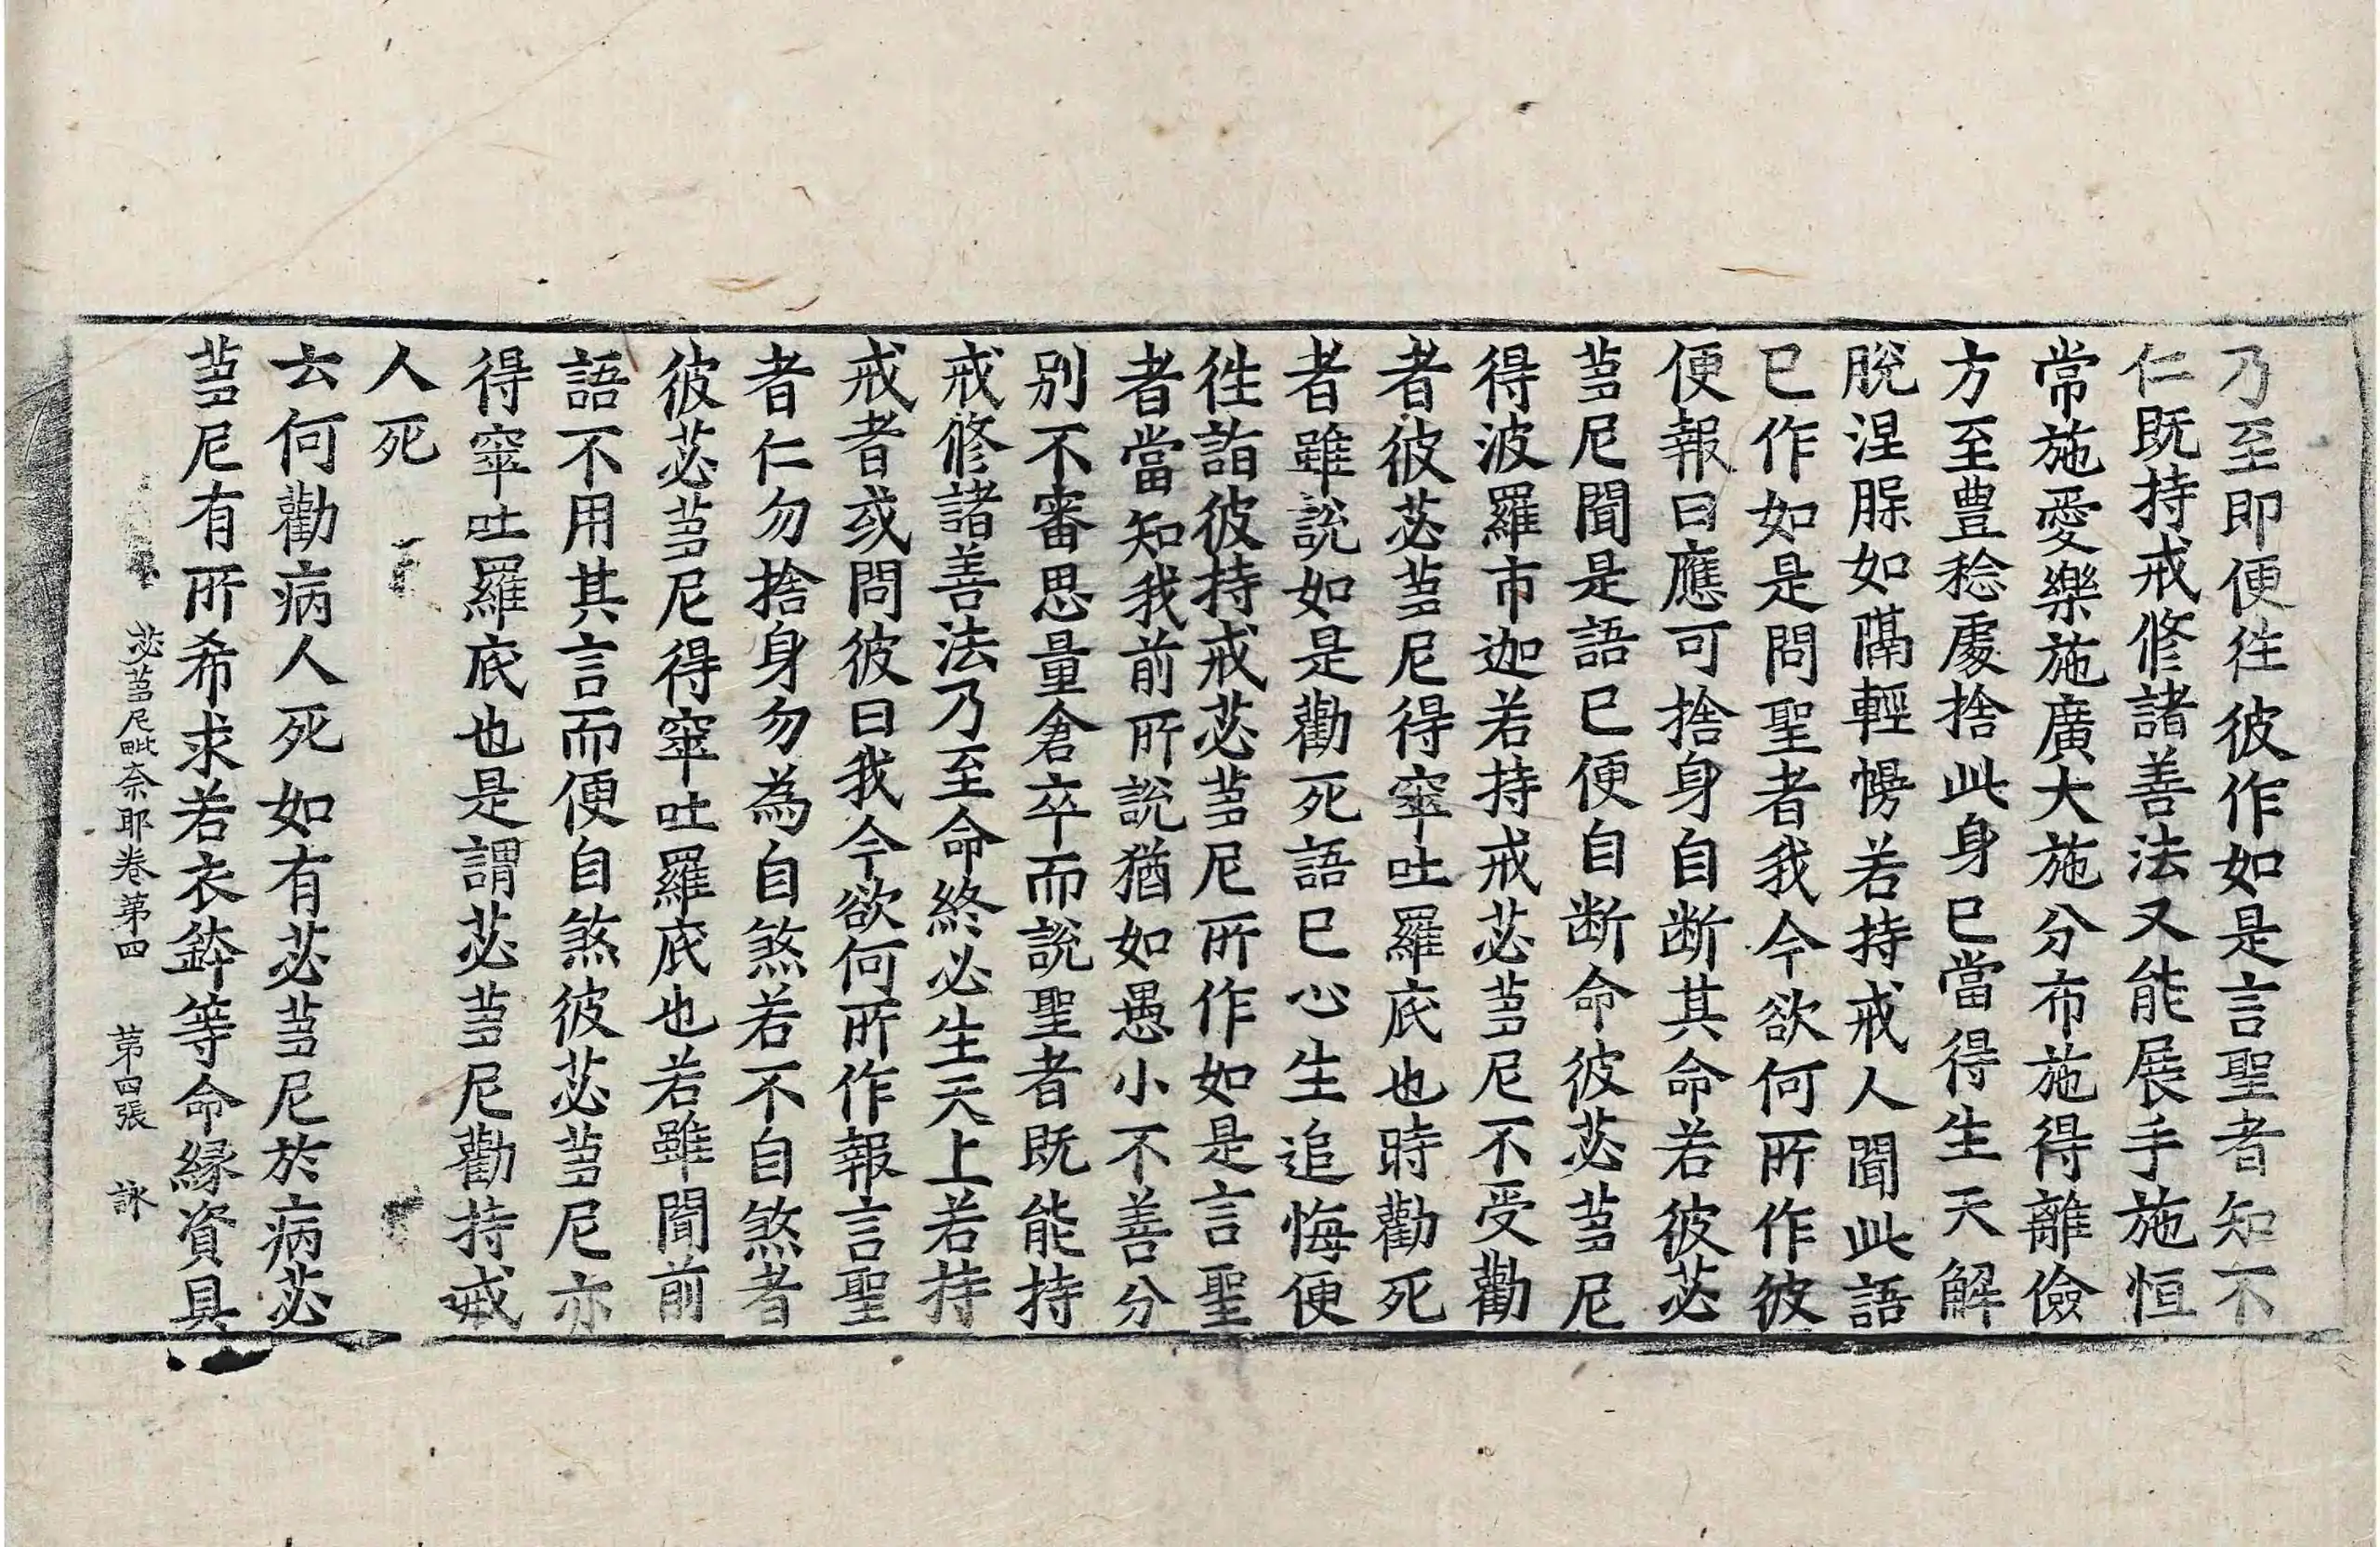 乃至即便往彼作如是言聖者知不
仁既持戒修諸善法又能展手施恒
常施愛樂施廣大施分布施得離儉
方至豊稔處捨此身已當得生天解
脫涅槃如隔輕幔若持戒人聞此語
已作如是問聖者我今欲何所作彼
便報曰應可捨身自断其命若彼苾
蒭尼聞是語已便自断命彼苾蒭尼
得波羅市迦若持戒苾蒭尼不受勸
者彼苾蒭尼得窣吐羅底也時勸死
者雖說如是勸死語已心生追悔便
往詣彼持戒苾蒭尼所作如是言聖
者當知我前所說猶如愚小不善分
別不審思量倉卒而說聖者既能持
戒修諸善法乃至命終必生天上若持
戒者或問彼曰我今欲何所作報言聖
者仁勿捨身勿為自煞若不自煞者
彼苾蒭尼得窣吐羅底也若雖聞前
語不用其言而便自煞彼苾蒭尼亦
得窣吐羅底也是謂苾蒭尼勸持戒
人死
云何勸病人死如有苾蒭尼於病苾
蒭尼有所希求若衣鉢等命緣資具
苾蒭尼毗奈耶卷第四 第四張 詠